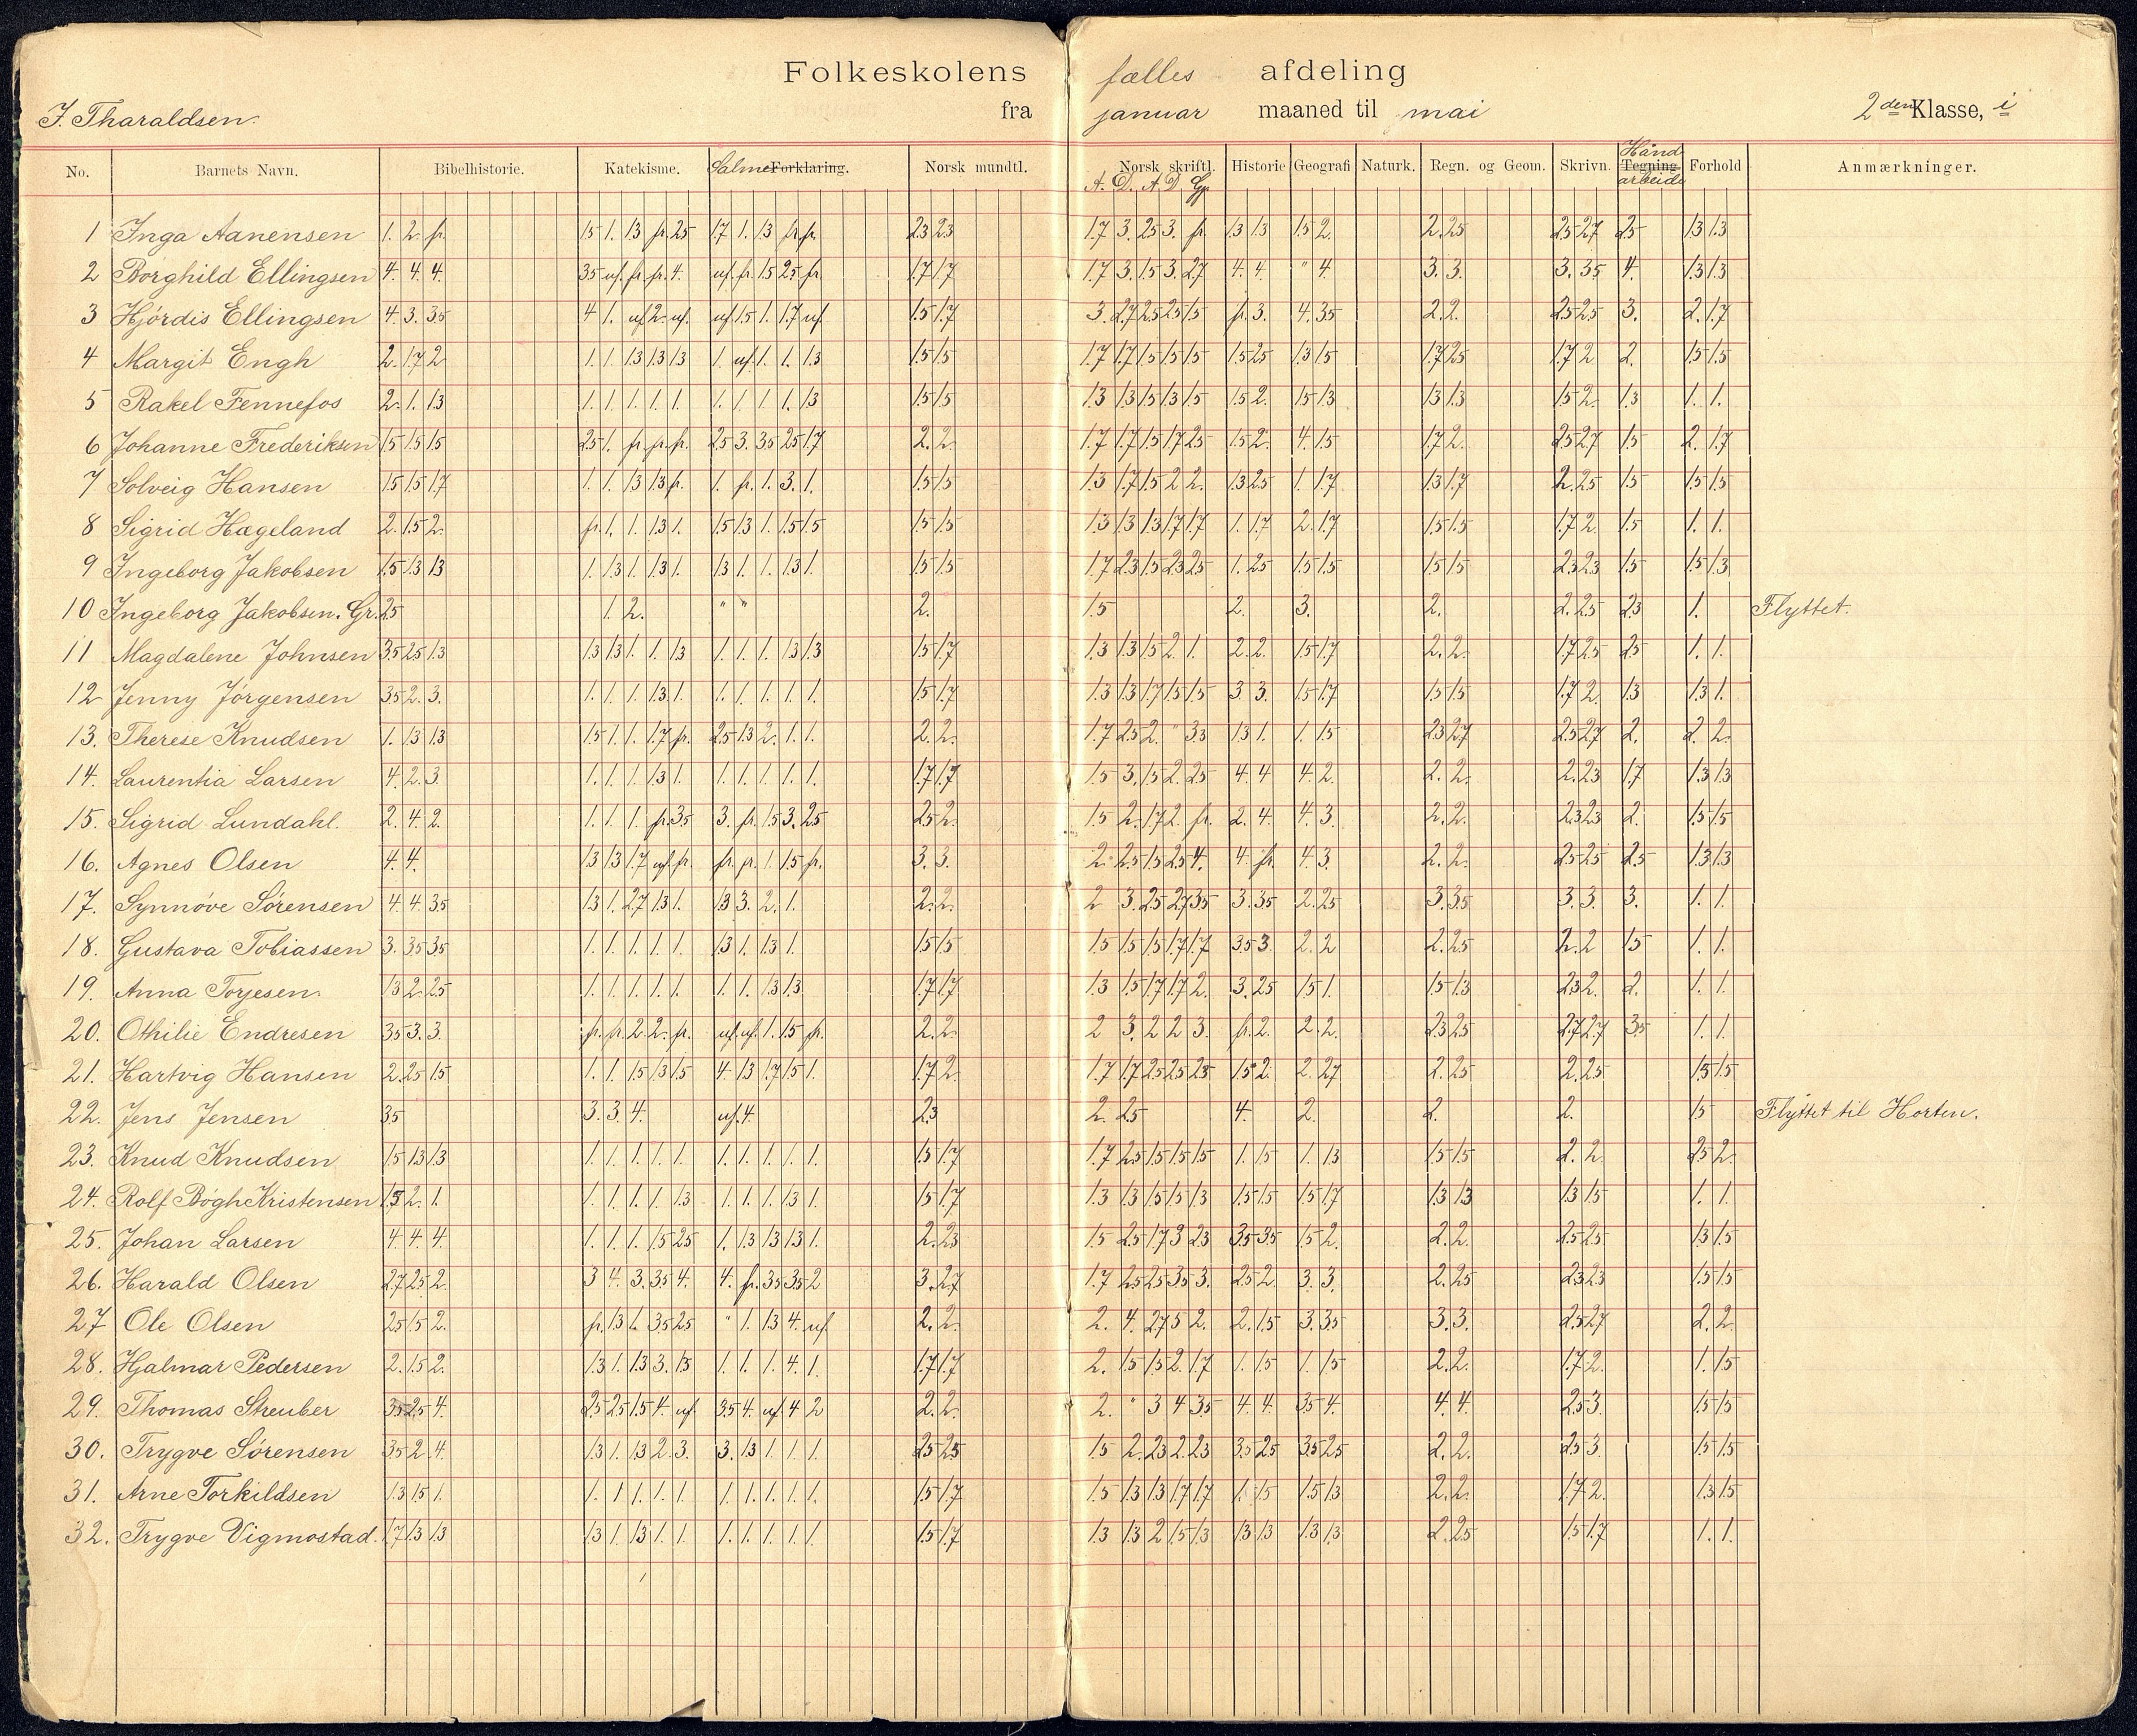 Folkeskolens fælles afdeling
J. Tharaldsen. fra januar maaned til mai 2den Klasse, i
No. Barnets Navn. Bibelhistorie. Katekisme. Salme Forklaring. Norsk mundtl. Norsk skriftl. Historie Geografi Naturk. Regn. og Geom. Skrivn. Hånd Tegning arbeide Forhold Anmærkninger.
A. D. A D Gp
1 Inga Aanensen 1. 2. fr. 15 1. 13 fr. 25 17 1. 13 fr. fr. 23 23 17 3. 25 3. fr. 13 13 15 2. 2. 25 25 27 25 13 13
2 Borghild Ellingsen 4. 4. 4. 35 uf. fr. fr. 4. uf. fr. 15 25 fr. 17 17 17 3. 15 3. 27 4. 4. " 4. 3. 3. 3. 35 4. 13 13
3 Hjørdis Ellingsen 4. 3. 35 4 1. uf 2. uf. uf. 15 1. 17 uf. 15 17 3. 27 25 25 15 fr. 3. 4. 35 2. 2. 25 25 3. 2. 17
4 Margit Engh 2. 17 2 1. 1. 13 13 13 1. uf. 1. 1. 13 15 15 17 17 15 15 15 15 25 13 15 17 25 17 2 2. 15 15
5 Rakel Fennefos 2. 1. 13 1. 1. 1. 1. 1. 1. 1. 1. 1. 13 15 15 13 13 15 13 15 15 2. 15 13 13 13 15 2. 13 1. 1.
6 Johanne Frederiksen 15 15 15 25 1. fr. fr. fr. 25 3. 35 25 17 2. 2. 17 17 15 17 25 15 2. 4. 15 17 2. 25 27 15 2. 17
7 Solveig Hansen 15 15 17 1. 1. 13 13 fr. 1. fr. 1. 3. 1. 15 15 13 17 15 2 2. 13 25 1. 17 13 17 2. 25 15 15 15
8 Sigrid Hageland 2. 15 2. fr. 1. 1. 13 1. 15 13 1. 15 15 15 15 13 13 13 17 17 1. 17 2. 17 15 15 17 2 15 1. 1.
9 Ingeborg Jakobsen 15 13 13 1. 13 1. 13 1. 13 1. 1. 13 1. 15 15 17 23 15 23 25 1. 25 15 15 15 15 23 23 15 15 13
10 Ingeborg Jakobsen. Gr. 25 1. 2. " " 2. 15 2. 3. 2. 2. 25 23 1. Flyttet.
11 Magdalene Johnsen 35 25 13 13 13 1. 1. 13 1. 1. 1. 13 13 15 17 13 13 15 2 1. 2. 2. 15 17 2. 2. 17 25 25 1. 1.
12 Jenny Jørgensen 35 2. 3. 1. 1. 1. 13 1. 1. 1. 1. 1. 1. 15 17 13 13 17 15 15 3 3. 15 17 15 15 17 2. 13 13 1.
13. Therese Knudsen 1. 13 13 15 1. 1. 17 fr. 25 13 2. 1. 1. 2. 2. 17 25 2. " 33 13 1. 1. 15 23 27 25 27 2. 2. 2.
14. Laurentia Larsen 4. 2. 3. 1. 1. 1. 13 1. 1. 1. 1. 1. 1. 17 17 15 3. 15 2. 25 4. 4 4. 2. 2. 2. 2. 23 17 13 13
15. Sigrid Lundahl. 2. 4. 2. 1. 1. 1. fr. 35 3. fr. 15 3. 25 25 2. 15 2. 17 2. fr. 2. 4. 4. 3. 2. 2. 23 23 2. 15 15
16. Agnes Olsen 4. 4. 13 13 17 uf. fr. fr. fr. 1. 15 fr. 3. 3. 2. 25 15 25 4. 4. fr. 4. 3. 2. 2. 25 25 25 13 13
17. Synnöve Sörensen 4. 4. 35 13 1. 27 13 1. 13 3. 2. 1. 2. 2. 2 3. 25 27 35 3. 35 2. 25 3. 35 3. 3. 3. 1. 1.
18. Gustava Tobiassen 3. 35 35 1. 1. 1. 1. 1. 13 1. 13 1. 15 15 15 15 15 17 17 35 3. 2. 2 2. 25 2. 2 15 1. 1.
19. Anna Torjesen. 13 2 25 1. 1. 1. 1. 1. 1. 1. 13 13 17 17 13 15 17 17 2. 3. 25 15 1. 15 13 23 2. 2. 1. 1.
20. Othilie Endresen 35 3. 3. fr. fr. 2. 2. fr. uf. uf. 1. 15 fr. 2. 2. 2 3. 2 2 3. fr. 2. 2. 2. 23 25 27 27 35 1. 1.
21. Hartvig Hansen 2. 25 15 1. 1. 15 13 15 4. 13 17 15 1. 17 2. 17 17 25 25 25 15 2. 2. 27 2. 25 2. 25 15 15
22. Jens Jensen 35 3. 3. 4. uf. 4. 23 2. 25 4. 2. 2. 2. 15 Flyttet til Horten.
23. Knud Knudsen 15 13 13 1. 1. 1. 1. 1. 1. 1. 1. 1. 1. 15 17 17 25 15 15 15 1. 15 1. 13 15 15 2. 2. 25 2.
24. Rolf Bögh Kristensen 15 2. 1. 1. 1. 1. 1. 13 1. 1. 1. 13 1. 15 17 13 13 15 15 13 15 15 15 17 13 13 13 15 1. 1.
25. Johan Larsen 4. 4. 4. 1. 1. 1. 15 25 1. 13 13 13 1. 2. 23 15 25 17 3 23 35 35 15 2. 2. 2. 25 25 13 15
26. Harald Olsen 27 25 2. 3 4. 3. 35 4. 4. fr. 35 35 2 3. 27 17 25 25 35 3. 25 2. 3. 3. 2. 25 23 23 15 15
27 Ole Olsen 25 15 2. fr. 13 1. 35 25 " 1. 13 4. uf 2. 2. 2. 4. 27 3 2. 2. 15 3. 35 3. 3. 25 27 2. 2.
28. Hjalmar Pedersen 2. 15 2. 13 1. 13 3. 13 1. 1. 1. 4. 1. 17 17 2. 15 15 2. 17 1. 15 1. 15 2. 2. 17 2. 1. 15
29. Thomas Streuber 35 25 4. 25 25 15 4. uf. 35 4. uf. 4 2 2. 2. 2. " 3 4 35 4. 4. 35 4. 4. 4. 25 3. 15 15
30. Trygve Sörensen 35 2. 4. 13 1. 13 2. 3. 3. 13 1. 1. 1. 25 25 15 2. 23 2. 23 35 25 35 25 2. 2. 25 3. 15 15
31. Arne Torkildsen 13 15 1. 1. 1 1. 1. 1. 1. 1. 1. 1. 1. 15 17 15 13 13 17 17 1. 15 15 13 2. 2. 17 2. 13 15
32. Trygve Vigmostad. 17 13 13 13 1. 13 1. 1. 1. 1. 1. 1. 1. 15 17 13 13 2 15 13 13 13 13 13 2. 25 15 17 1. 1.